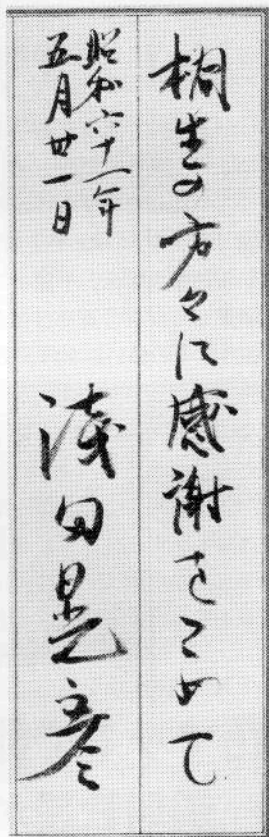 桐生の方々に感謝をこめて
昭和六十一年
五月廿一日
浅田晃彦